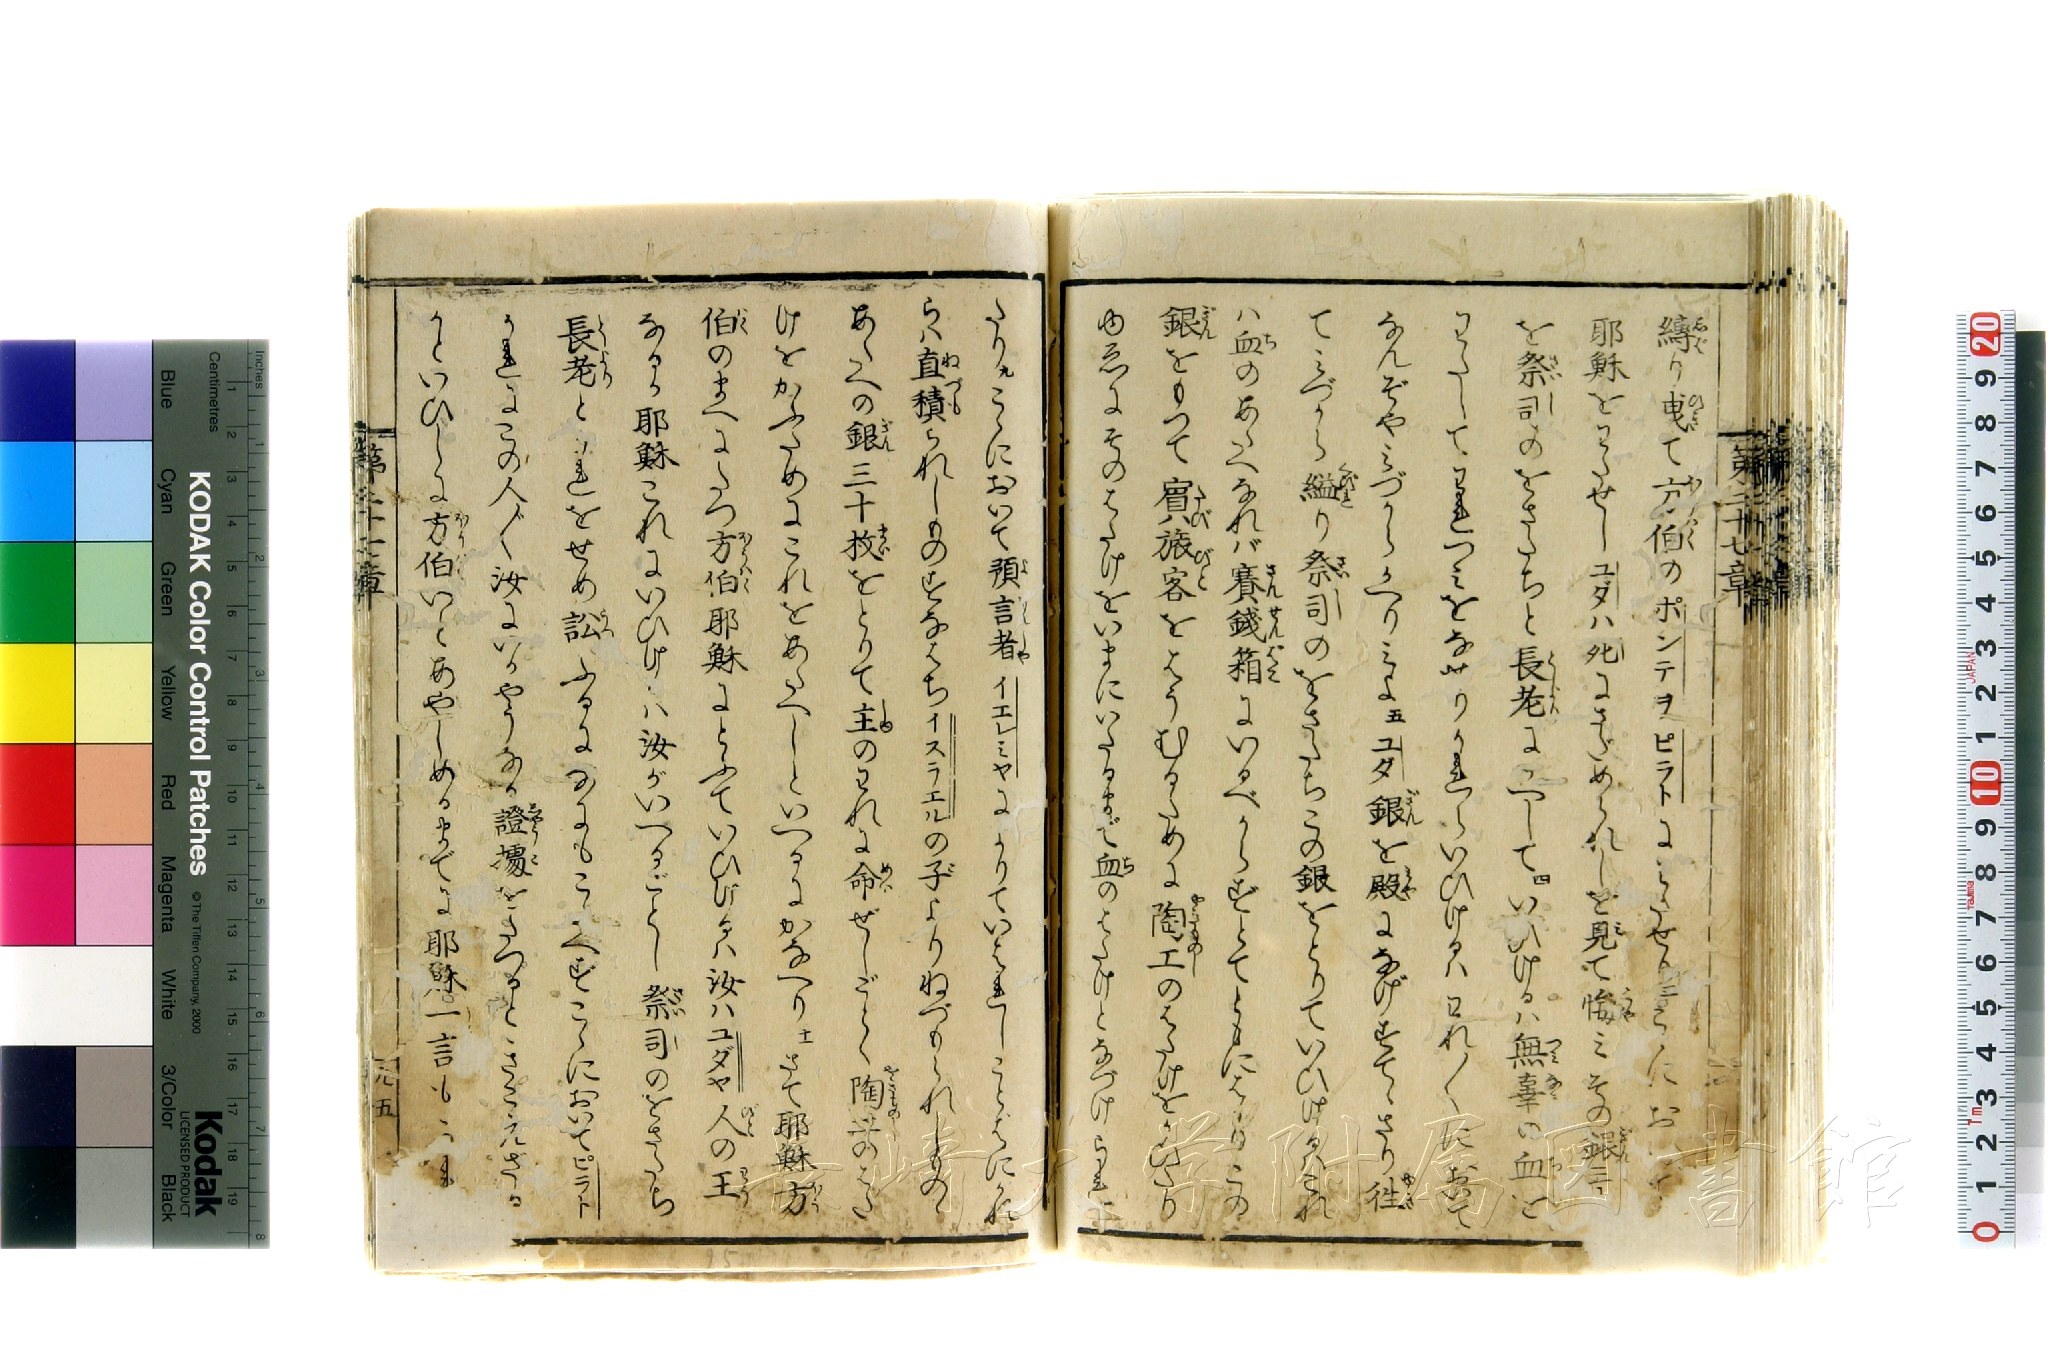 縛り曳て方伯のポンテヲピラトにわたせり三こゝにおいて
耶穌をわたせしユダハ死にさだめられしを見て悔ミその銀三十
を祭司のをさたちと長老にかへして四いひけるハ無辜の血を
わたしてわれつミをなせりかれらいひけるハわれ〳〵において
なんぞやミづからかへりミよ五ユダ銀を殿になげすてゝさり往
てミづから縊り祭司のをさたちこの銀をとりていひけるハこれ
ハ血のあたへなれバ賽錢箱にいるべからずとてともにはかりこの
銀をもつて賓旅客をはうむるために陶工のはたけをかひたり
ゆゑにそのはたけをいまにいたるまで血のはたけとなづけられ
たり九こゝにおいて預言者イエレミヤによりていはれしことばにかれ
らハ直積られしものすなはちイスラエルの子よりねづもられしものゝ
あたへの銀三十枚をとりて主のわれに命ぜしごとく陶工のはた
けをかふためにこれをあたへしといへるにかなへり十一さて耶穌方
伯のまへにたつ方伯耶穌にとふていひけるハ汝ハユダヤ人の王
なるか耶穌これにいひけるハ汝がいへるごとし祭司のをさたち
長老とかれをせめ訟ふるになにもこたへずこゝにおいてピラト
かれにこの人〳〵汝にいかやうなる證據をたつるときこえざる
かといひしに方伯いとあやしめるまでに耶穌一言もこたへ
第二十七章
Kodak
LICENSED PRODUCT
KODAK Color Control Patches
© The Tiffen Company, 2000
Inches
Centimetres
Blue
Cyan
Green
Yellow
Red
Magenta
White
3/Color
Black
長崎大学附属図書館
JAPAN